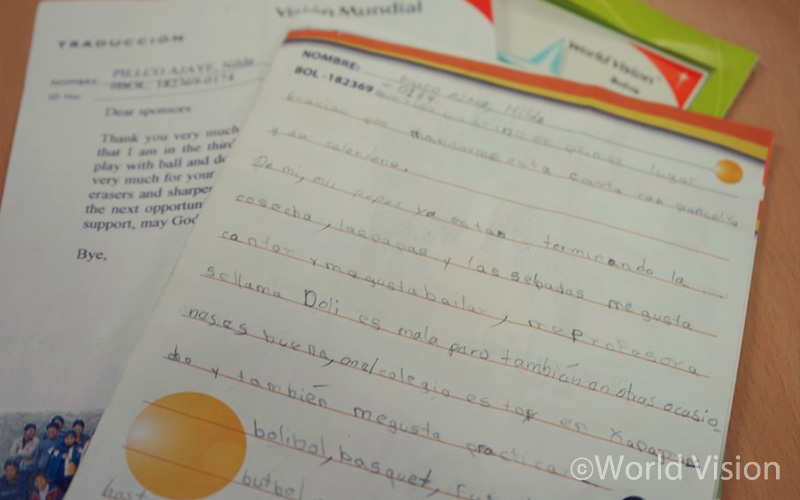 Visión Mundial
TRADUCCIÓN
NOMBRE PILLCO AJAYE, Nilda
ID No: BOL: 182369-0174
Dear sponsors
Thank you very much
that I am in the third
play with ball and
very much for your
erasers and sharpe
the next opportun
support, may God
Bye,
World Vision
Bolivia
NOMBRE:
BOL-182369 -
Gracias por carta con
y su calendario.
De mi, mis papas ya estan terminando la
cosecha, las papas y las sebadas me gusta
cantar y me gusta bailar, me profesora
se llama Doli es mala paro también an otras ocasio
nases buena, en el colegio es
do y también me gusta practica
bolibol, basquet,
butbol
hast
©World Vision